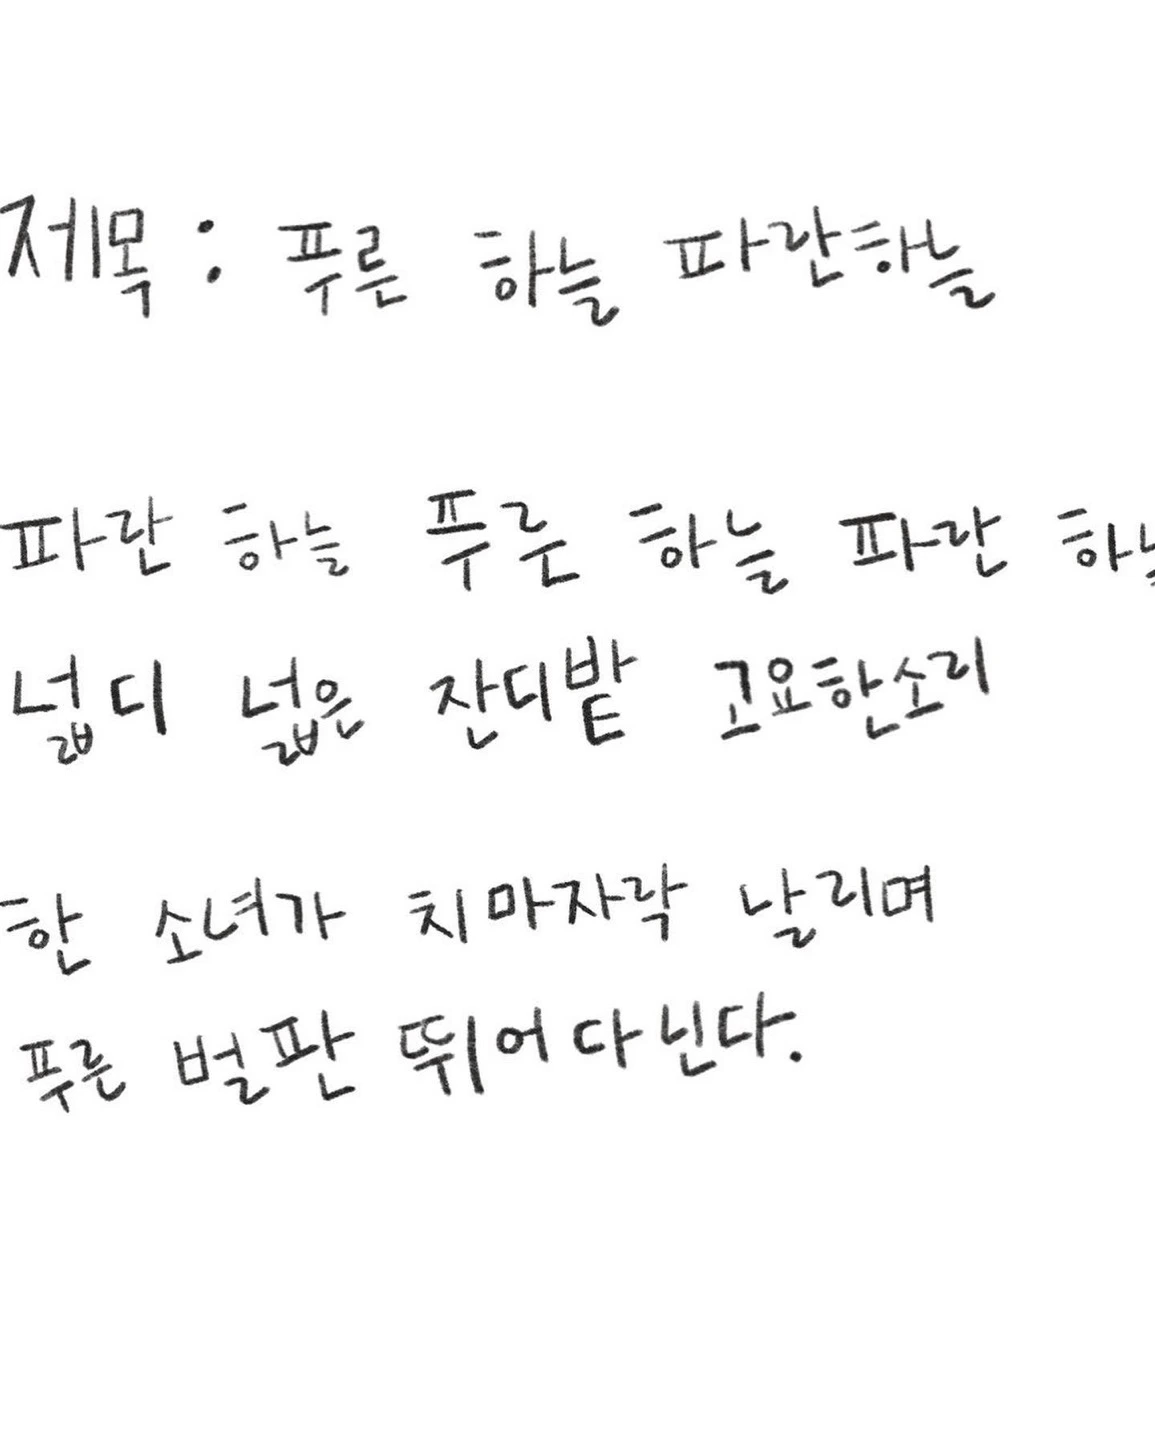 제목 : 푸른 하늘 파란하늘
파란 하늘 푸른 하늘 파란
넓디 넓은 잔디밭 고요한소리
한 소녀가 치마자락 날리며
푸른 벌판 뛰어 다닌다.